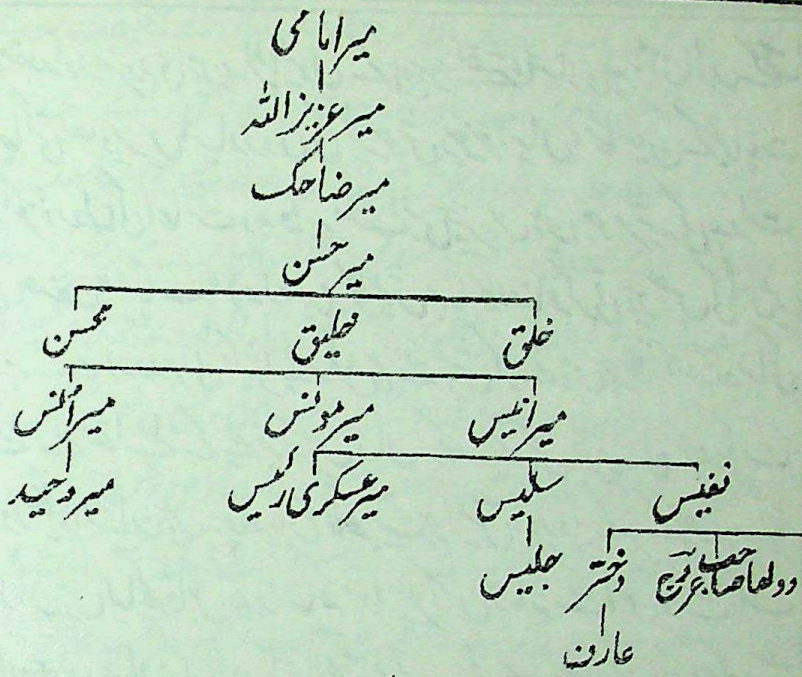 میر امامی
میر عزیز اللہ
میر ضاحک
میر حسن
خلق خلیق محسن
میر انیس میر مونس میر انس
نفیس سلیس میر عسکری رئیس میر وحید
دولھا صاحب عروج دختر جلیس
عارف